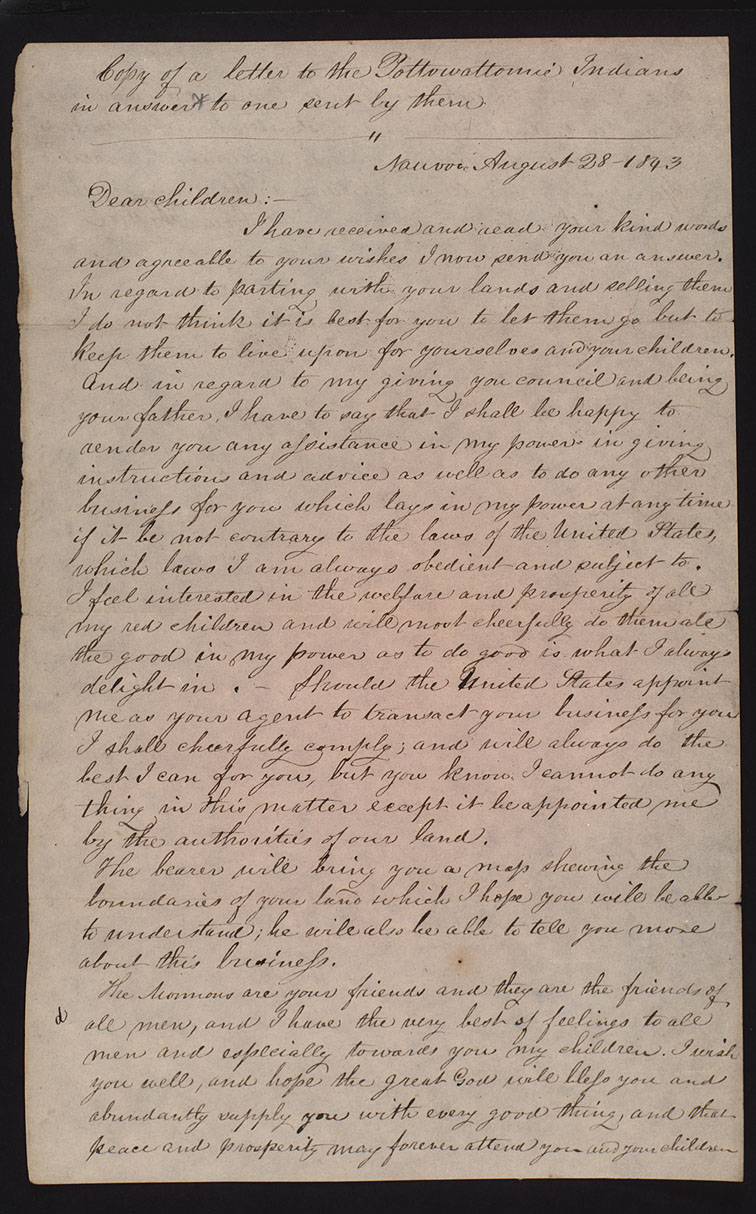 Copy of a letter to the Pottowattomie Indians
in answer to one sent by them
"
Nauvoo August 28 - 1843
Dear children:—
I have received and read your kind words
and agreeable to your wishes I now send you an answer.
In regard to parting with your lands and selling them
I do not think it is best for you to let them go but to
keep them to live upon for yourselves and your children.
And in regard to my giving you council and being
your father, I have to say that I shall be happy to
render you any assistance in my power in giving
instructions and advice as well as to do any other
business for you which lays in my power at any time
if it be not contrary to the laws of the United States,
which laws I am always obedient and subject to.
I feel interested in the welfare and prosperity of all
my red children and will most cheerfully do them all
the good in my power as to do good is what I always
delight in. — Should the United States appoint
me as your agent to transact your business for you
I shall cheerfully comply; and will always do the
best I can for you, but you know I cannot do any
thing in this matter except it be appointed me
by the authorities of our land.
The bearer will bring you a map shewing the
boundaries of your land which I hope you will be able
to understand; he will also be able to tell you more
about this business.
The Mormons are your friends and they are the friends of
all men, and I have the very best of feelings to all
men and especially towards you my children. I wish
you well, and hope the great God will bless you and
abundantly supply you with every good thing, and that
peace and prosperity may forever attend you and your children